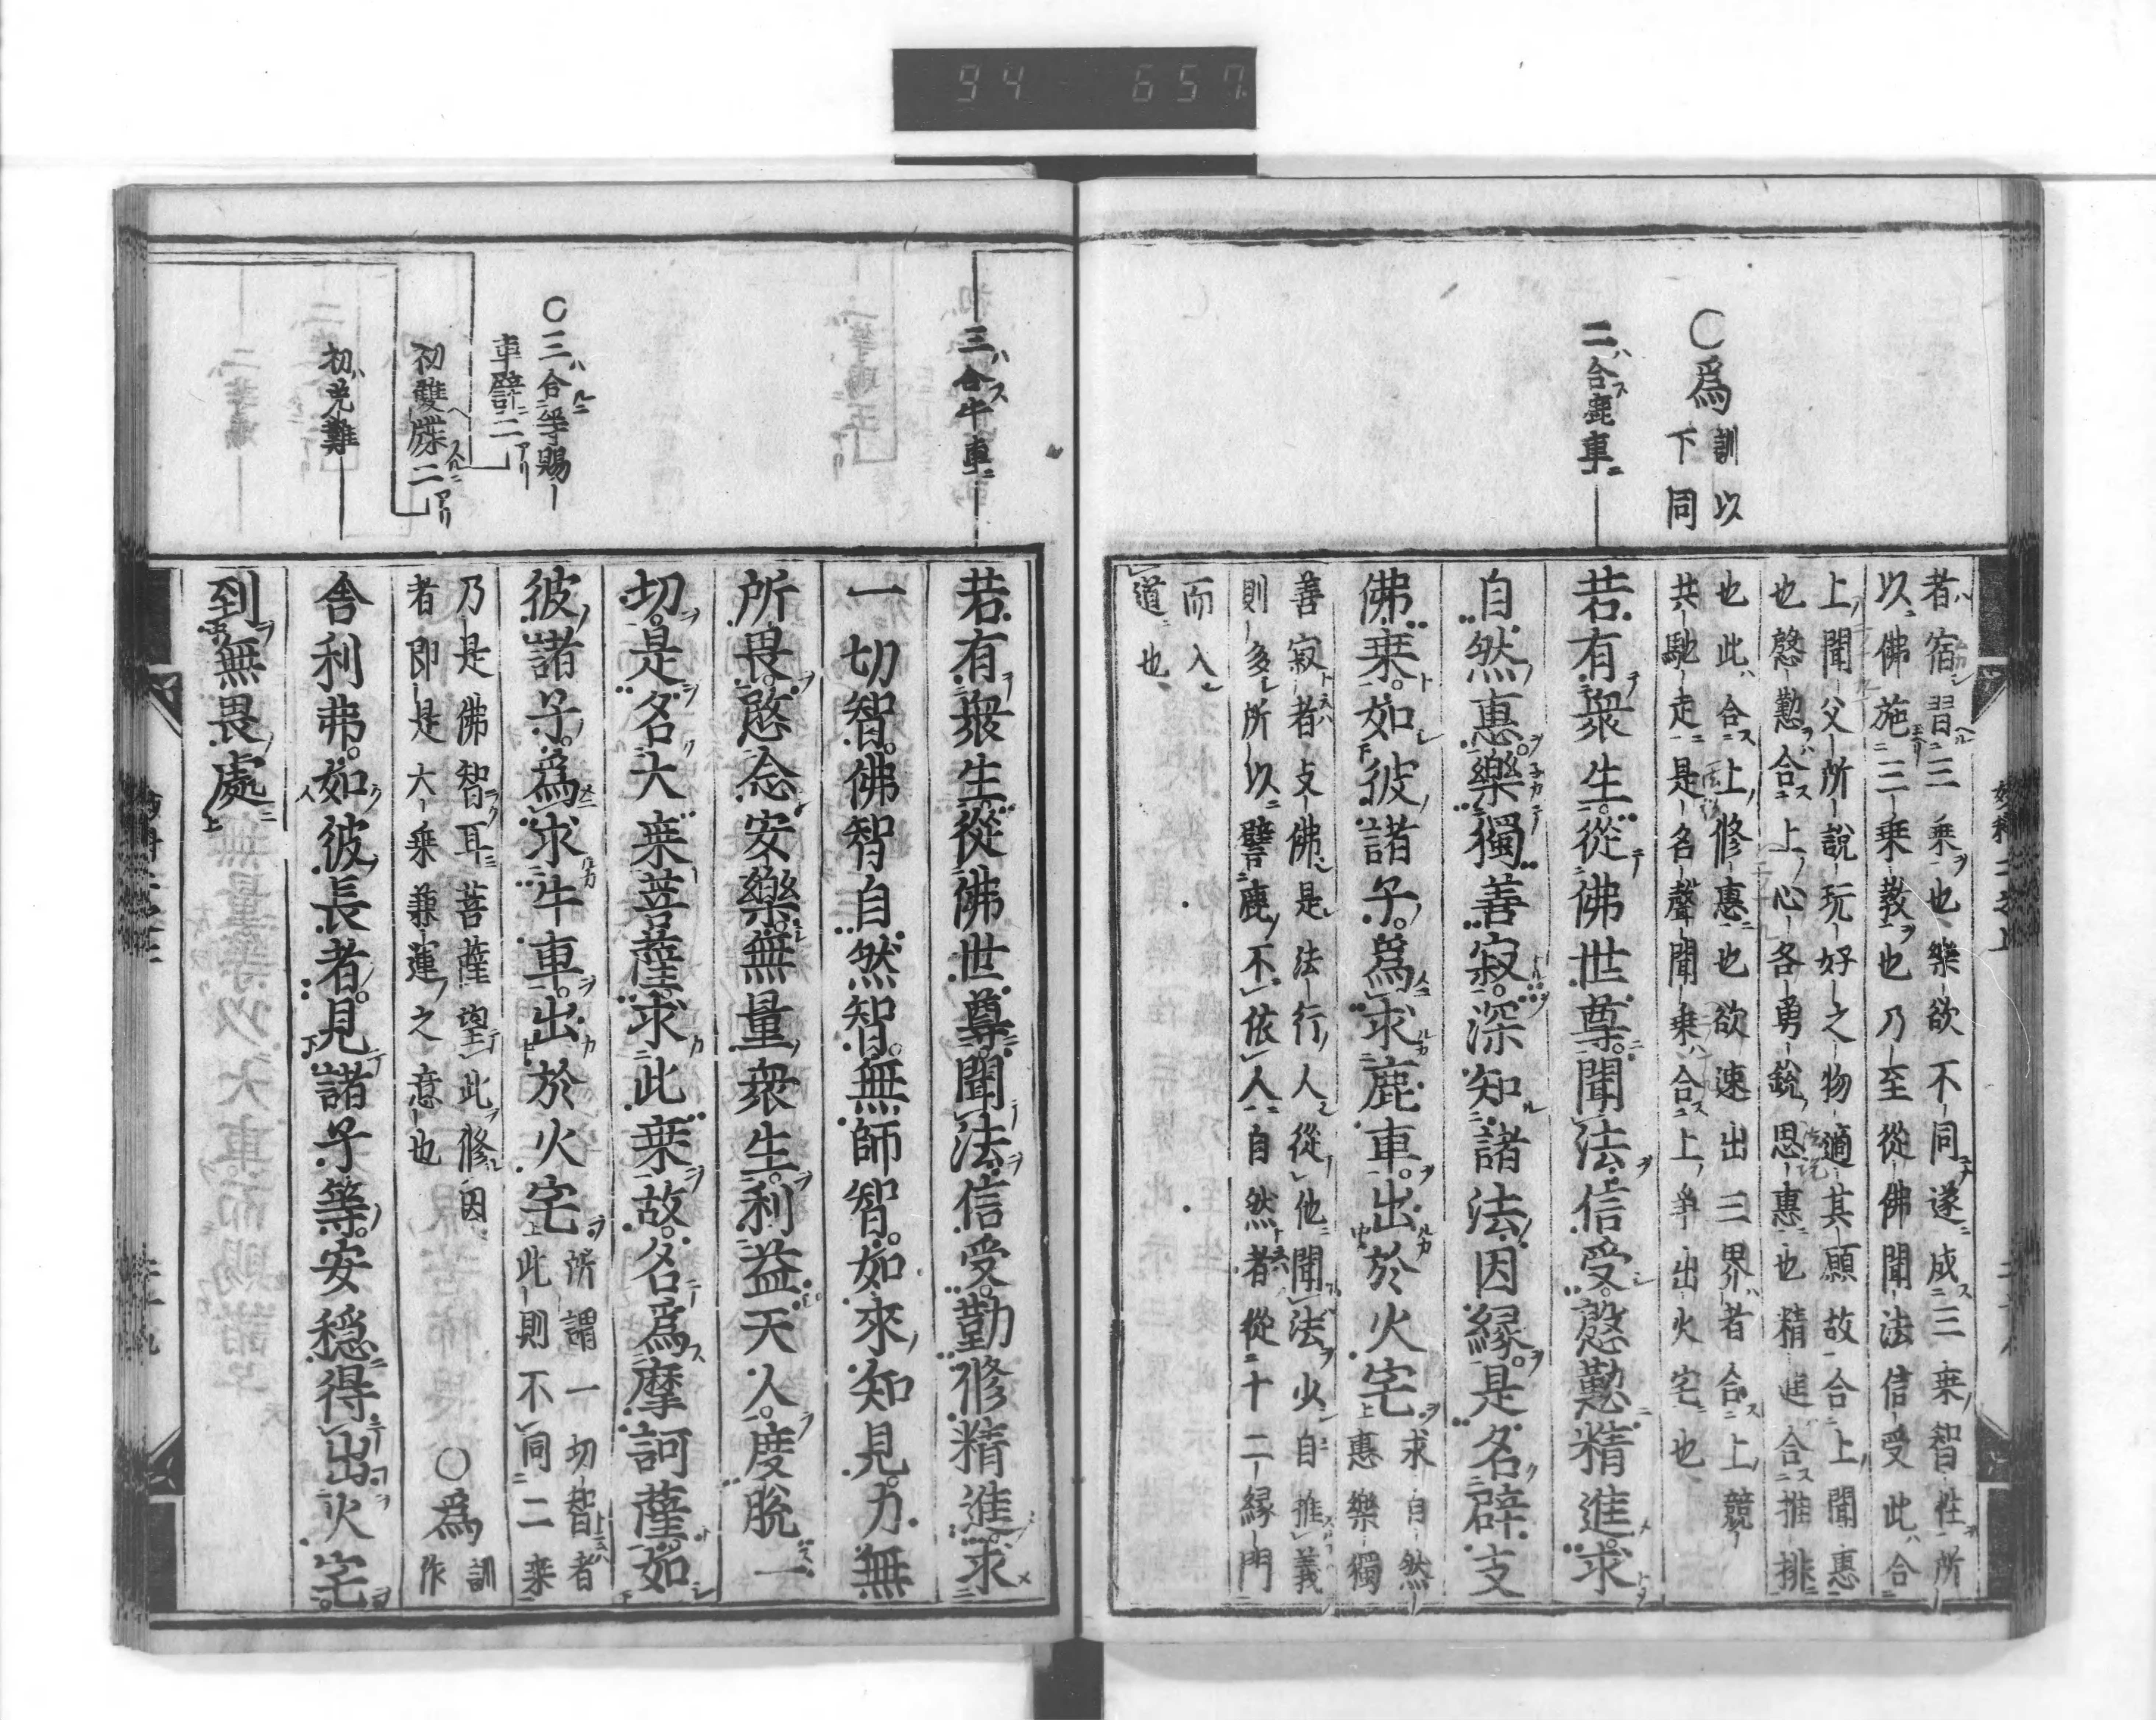 94 657
〇爲訓以
下同
二合鹿車
者宿習三乘也樂欲不同遂成三乘智性所
以佛施三乘教也乃至從佛聞法信受此合
上聞父所說玩好之物適其願故合上聞惠
也慇懃合上心各勇銳思惠也精進合推排
也此合上修惠也欲速出三界者合上競
共馳走是名聲聞乘合上爭出火宅也
若有衆生從佛世尊聞法信受慇懃精進求
自然惠樂獨善寂深知諸法因縁是名辟支
佛乘如彼諸子爲求鹿車出於火宅
求自然
惠樂獨
善寂者攴佛是法行人從他聞法少自推義
則多所以譬鹿不依人自然者從十二縁門
而入
道也
三合牛車
〇三合爭賜
車譬二
初雙牒二
初免難
若有衆生從佛世尊聞法信受勤修精進求
一切智佛智自然智無師智如來知見力無
所畏愍念安樂無量衆生利益天人度脫一
切是名大乘菩薩求此乘故名爲摩訶薩如
彼諸子爲求牛車出於火宅
所謂一切智者
此則不同二乘
乃是佛智耳菩薩望此修因
者即是大乘兼運之意也
〇爲訓
作
舎利弗如彼長者見諸子等安穏得出火宅
到無畏處